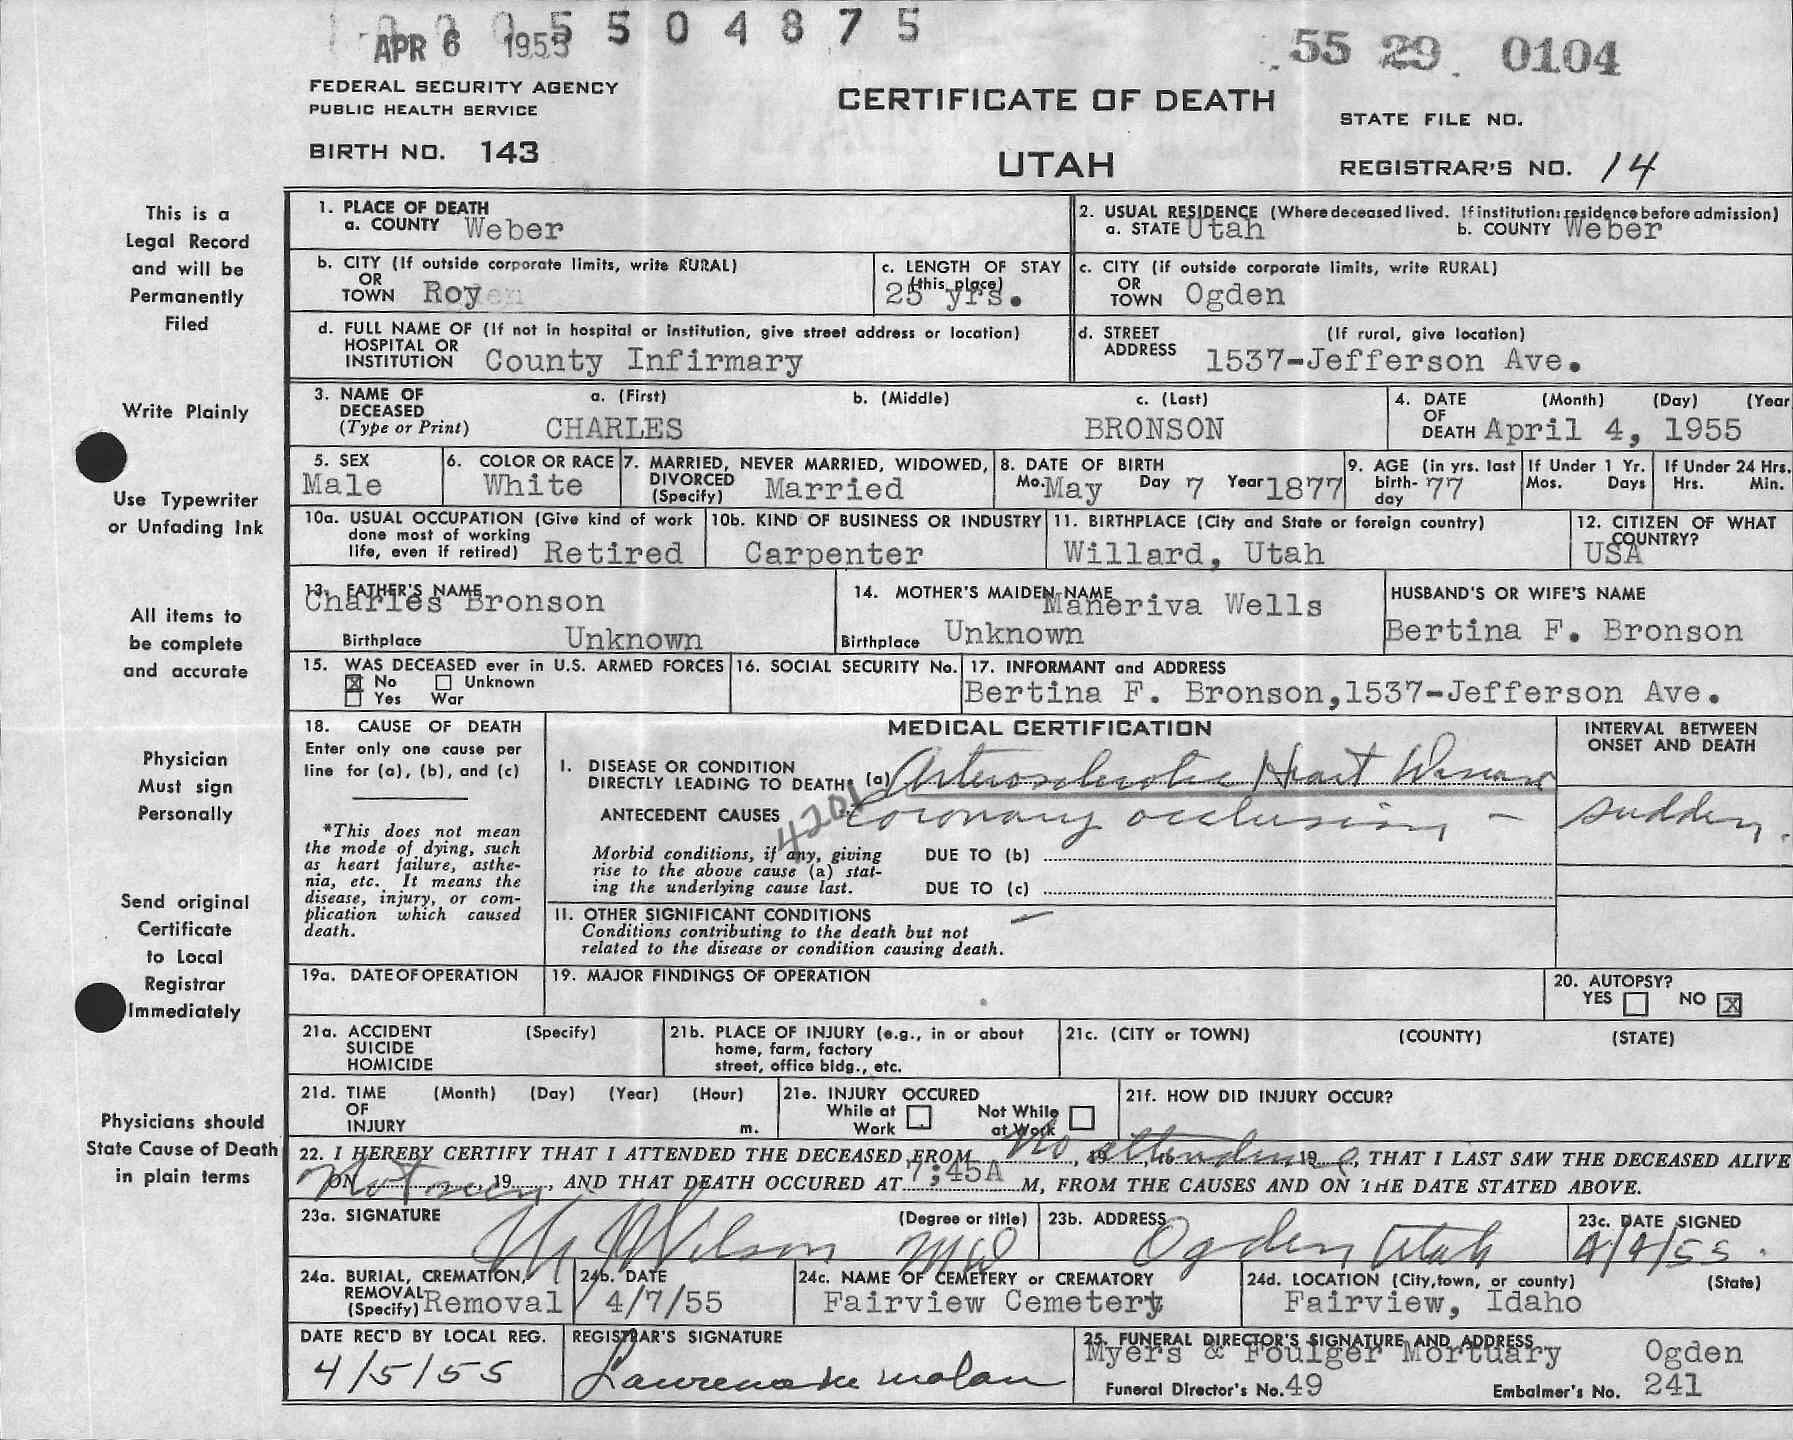 5504875
APR 6 1955
55 29 0104
FEDERAL SECURITY AGENCY
PUBLIC HEALTH SERVICE
CERTIFICATE OF DEATH
STATE FILE NO.
BIRTH NO. 143
UTAH
REGISTRAR'S NO. 14
This is a
Legal Record
and will be
Permanently
Filed
Write Plainly
Use Typewriter
or Unfading Ink
All items to
be complete
and accurate
Physician
Must sign
Personally
Send original
Certificate
to Local
Registrar
Immediately
Physicians should
State Cause of Death
in plain terms
1. PLACE OF DEATH
a. COUNTY Weber
2. USUAL RESIDENCE (Where deceased lived. If institution: residence before admission)
a. STATE Utah b. COUNTY Weber
b. CITY (If outside corporate limits, write RURAL)
OR
TOWN Roy
c. LENGTH OF STAY
(this place)
25 yrs.
c. CITY (if outside corporate limits, write RURAL)
OR
TOWN Ogden
d. FULL NAME OF (If not in hospital or institution, give street address or location)
HOSPITAL OR
INSTITUTION County Infirmary
d. STREET (If rural, give location)
ADDRESS 1537-Jefferson Ave.
3. NAME OF a. (First) b. (Middle) c. (Last)
DECEASED
(Type or Print) CHARLES BRONSON
4. DATE (Month) (Day) (Year
OF
DEATH April 4, 1955
5. SEX
Male
6. COLOR OR RACE
White
7. MARRIED, NEVER MARRIED, WIDOWED,
DIVORCED
(Specify) Married
8. DATE OF BIRTH
Mo. May Day 7 Year 1877
9. AGE (in yrs. last
birth-
day 77
If Under 1 Yr.
Mos. Days
If Under 24 Hrs.
Hrs. Min.
10a. USUAL OCCUPATION (Give kind of work
done most of working
life, even if retired) Retired
10b. KIND OF BUSINESS OR INDUSTRY
Carpenter
11. BIRTHPLACE (City and State or foreign country)
Willard, Utah
12. CITIZEN OF WHAT
COUNTRY?
USA
13. FATHER'S NAME
Charles Bronson
Birthplace Unknown
14. MOTHER'S MAIDEN NAME
Maneriva Wells
Birthplace Unknown
HUSBAND'S OR WIFE'S NAME
Bertina F. Bronson
15. WAS DECEASED ever in U.S. ARMED FORCES
No Unknown
Yes War
16. SOCIAL SECURITY No.
17. INFORMANT and ADDRESS
Bertina F. Bronson,1537-Jefferson Ave.
18. CAUSE OF DEATH
Enter only one cause per
line for (a), (b), and (c)
*This does not mean
the mode of dying, such
as heart failure, asthe-
nia, etc. It means the
disease, injury, or com-
plication which caused
death.
MEDICAL CERTIFICATION
I. DISEASE OR CONDITION
DIRECTLY LEADING TO DEATH* (a) Arteriosclerotic Heart Disease
4201
ANTECEDENT CAUSES coronary occlusion -
Morbid conditions, if any, giving
rise to the above cause (a) stat-
ing the underlying cause last.
DUE TO (b)
DUE TO (c)
II. OTHER SIGNIFICANT CONDITIONS
Conditions contributing to the death but not
related to the disease or condition causing death.
INTERVAL BETWEEN
ONSET AND DEATH
sudden.
19a. DATE OF OPERATION
19. MAJOR FINDINGS OF OPERATION
20. AUTOPSY?
YES NO X
21a. ACCIDENT (Specify)
SUICIDE
HOMICIDE
21b. PLACE OF INJURY (e.g., in or about
home, farm, factory
street, office bldg., etc.
21c. (CITY or TOWN) (COUNTY) (STATE)
21d. TIME (Month) (Day) (Year) (Hour)
OF
INJURY m.
21e. INJURY OCCURED
While at Work
Not While at Work
21f. HOW DID INJURY OCCUR?
22. I HEREBY CERTIFY THAT I ATTENDED THE DECEASED FROM No, 19 attendance 19, THAT I LAST SAW THE DECEASED ALIVE
ON Not seen, 19, AND THAT DEATH OCCURED AT 7;45A M, FROM THE CAUSES AND ON THE DATE STATED ABOVE.
23a. SIGNATURE (Degree or title)
Wilson MD
23b. ADDRESS
Ogden Utah
23c. DATE SIGNED
4/4/55.
24a. BURIAL, CREMATION,
REMOVAL
(Specify) Removal
24b. DATE
4/7/55
24c. NAME OF CEMETERY or CREMATORY
Fairview Cemetery
24d. LOCATION (City,town, or county) (State)
Fairview, Idaho
DATE REC'D BY LOCAL REG.
4/5/55
REGISTRAR'S SIGNATURE
Malan
25. FUNERAL DIRECTOR'S SIGNATURE AND ADDRESS
Myers & Foulger Mortuary Ogden
Funeral Director's No. 49 Embalmer's No. 241